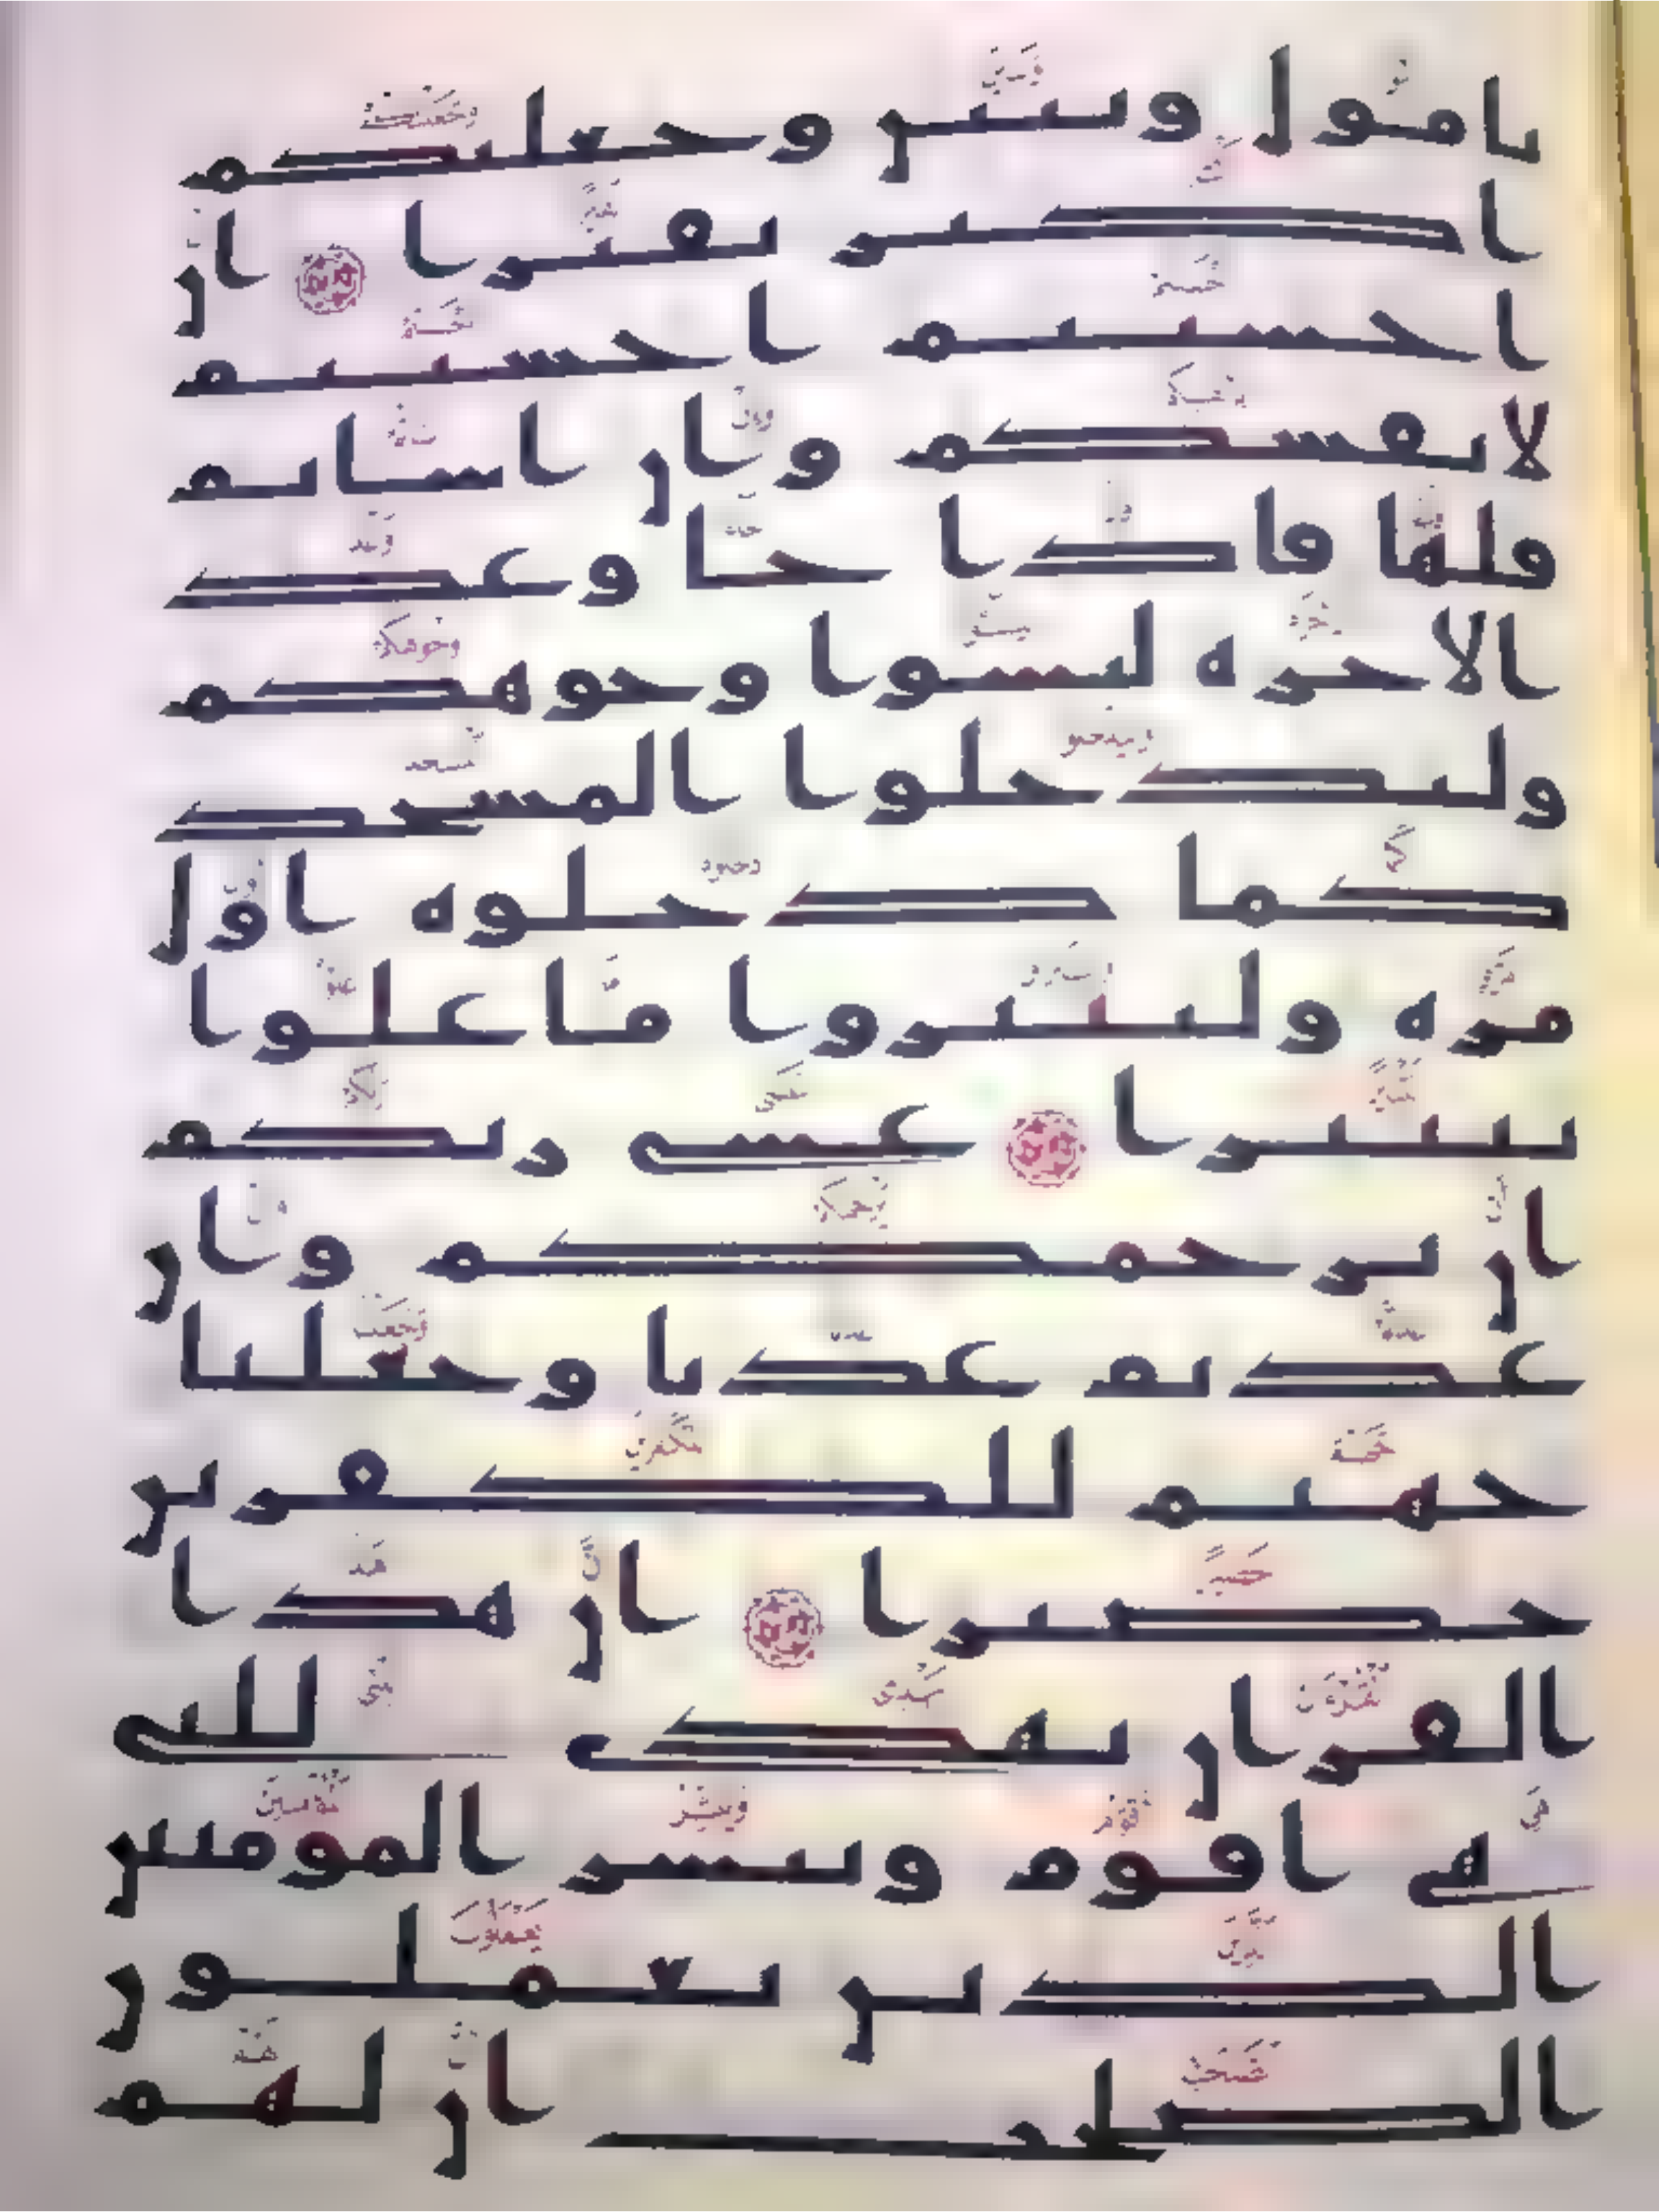 بامول وبنين وجعلنكم
اكثر نفيرا ان
احسنتم احسنتم
لانفسكم وان اساتم
فلها فاذا جا وعد
الاخرة ليسوا وجوهكم
وليدخلوا المسجد
كما دخلوه اول
مرة وليتبروا ما علوا
تتبيرا عسى ربكم
ان يرحمكم وان
عدتم عدنا وجعلنا
جهنم للكفرين
حصيرا ان هذا
القران يهدى للتى
هى اقوم ويبشر المومنين
الذين يعملون
الصلحت ان لهم